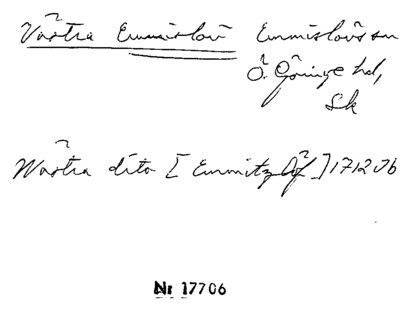 Västra Emmislöv Emmislövs sn
Ö. Göinge hd,
Sk
Wästra dito [Emmitzlöf] 1712 Jb
Nr 17706